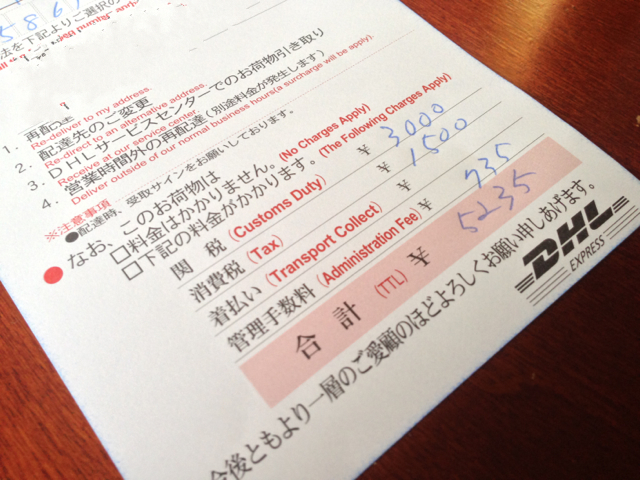 586
法を下記よりご選択の
number and
1. 再配達
Re-deliver to my address.
2. 配達先のご変更
Re-direct to an alternative address.
3. DHLサービスセンターでのお荷物引き取り
Receive at our service center.
4. 営業時間外の再配達(別途料金が発生します)
Deliver outside of our normal business hours(a surcharge will be apply).
※注意事項
●配達時、受取サインをお願いしております。
●なお、このお荷物は
□料金はかかりません。(No Charges Apply)
□下記の料金がかかります。(The Following Charges Apply)
関 税(Customs Duty) ¥ 3000
消費税(Tax) ¥ 1500
着払い(Transport Collect) ¥
管理手数料(Administration Fee) ¥ 735
合 計 (TTL) ¥ 5235
今後ともより一層のご愛顧のほどよろしくお願い申しあげます。
DHL
EXPRESS